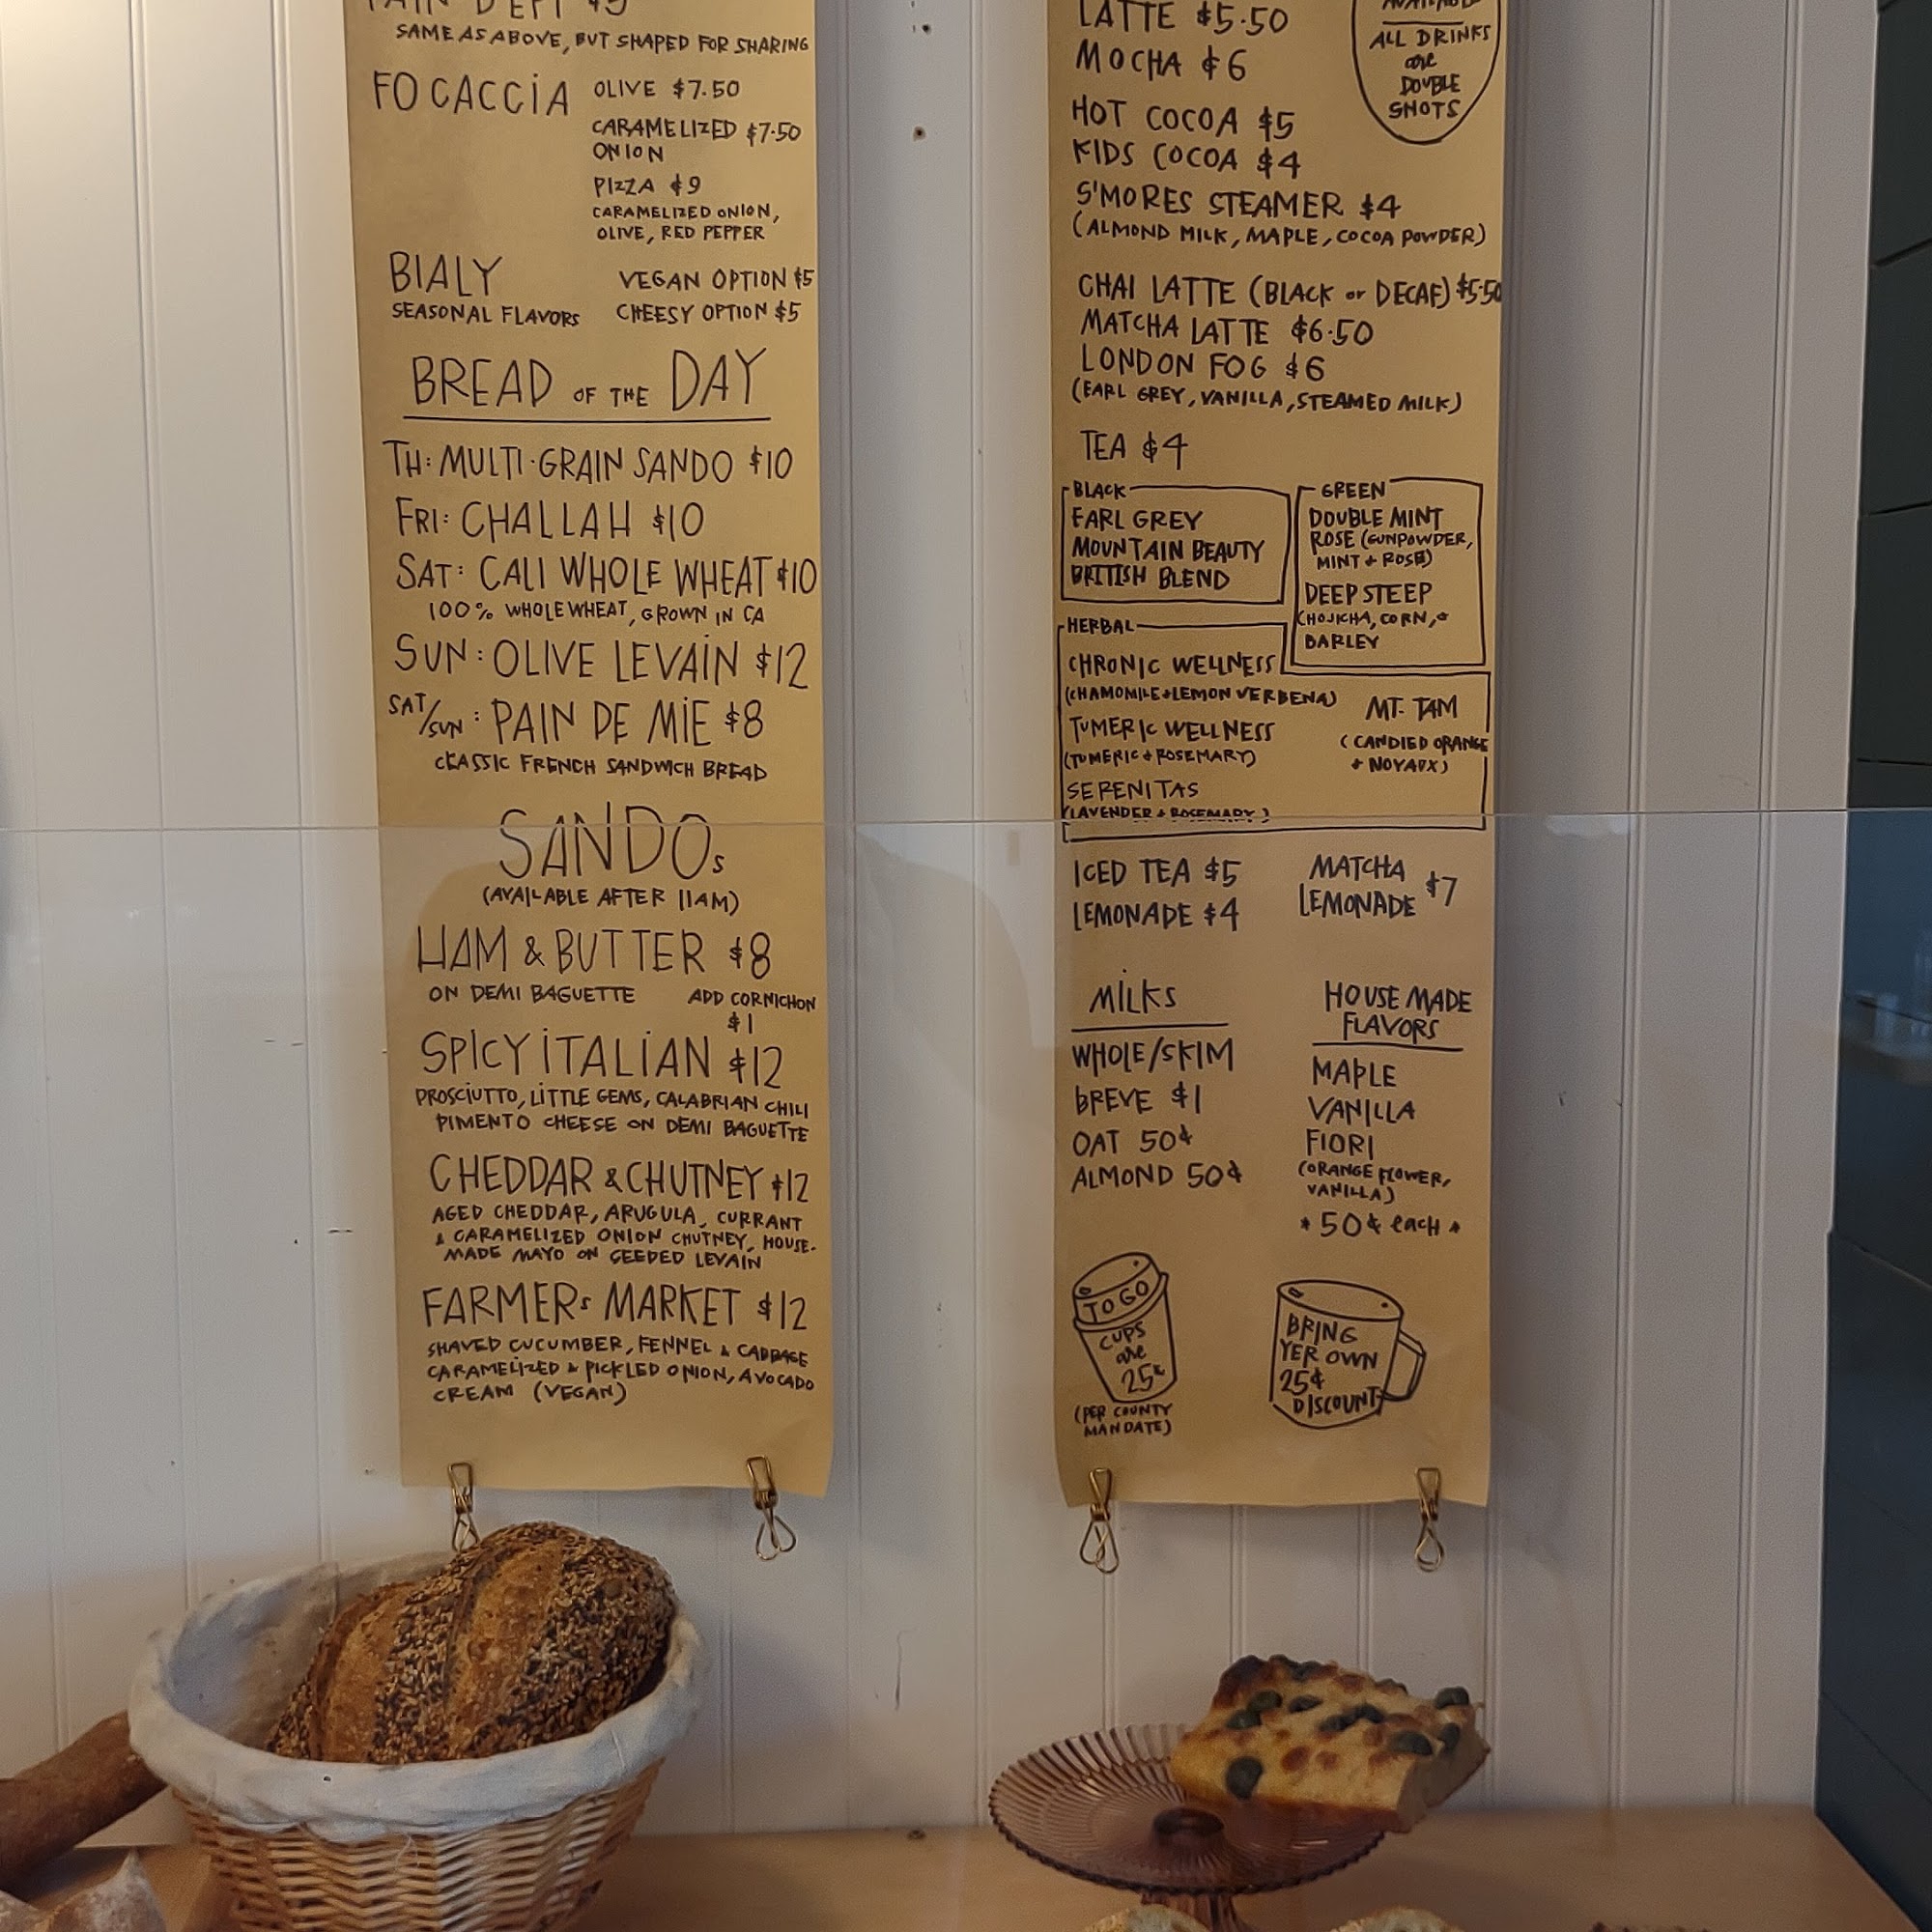 PAIN D'EPI $5
SAME AS ABOVE, BUT SHAPED FOR SHARING
FOCACCIA OLIVE $7.50
CARAMELIZED $7.50
ONION
PIZZA $9
CARAMELIZED ONION,
OLIVE, RED PEPPER
BIALY VEGAN OPTION $5
SEASONAL FLAVORS CHEESY OPTION $5
BREAD OF THE DAY
TH: MULTI-GRAIN SANDO $10
FRI: CHALLAH $10
SAT: CALI WHOLE WHEAT $10
100% WHOLE WHEAT, GROWN IN CA
SUN: OLIVE LEVAIN $12
SAT/SUN: PAIN DE MIE $8
CLASSIC FRENCH SANDWICH BREAD
SANDOs
(AVAILABLE AFTER 11AM)
HAM & BUTTER $8
ON DEMI BAGUETTE ADD CORNICHON
$1
SPICY ITALIAN $12
PROSCIUTTO, LITTLE GEMS, CALABRIAN CHILI
PIMENTO CHEESE ON DEMI BAGUETTE
CHEDDAR & CHUTNEY $12
AGED CHEDDAR, ARUGULA, CURRANT
& CARAMELIZED ONION CHUTNEY, HOUSE-
MADE MAYO ON SEEDED LEVAIN
FARMERs MARKET $12
SHAVED CUCUMBER, FENNEL & CABBAGE
CARAMELIZED & PICKLED ONION, AVOCADO
CREAM (VEGAN)
LATTE $5.50
MOCHA $6
AVAILABLE
ALL DRINKS
are
DOUBLE
SHOTS
HOT COCOA $5
KIDS COCOA $4
S'MORES STEAMER $4
(ALMOND MILK, MAPLE, COCOA POWDER)
CHAI LATTE (BLACK or DECAF) $5.50
MATCHA LATTE $6.50
LONDON FOG $6
(EARL GREY, VANILLA, STEAMED MILK)
TEA $4
BLACK
EARL GREY
MOUNTAIN BEAUTY
BRITISH BLEND
GREEN
DOUBLE MINT
ROSE (GUNPOWDER,
MINT + ROSE)
DEEP STEEP
(HOJICHA, CORN, +
BARLEY
HERBAL
CHRONIC WELLNESS
(CHAMOMILE + LEMON VERBENA)
TUMERIC WELLNESS
(TUMERIC + ROSEMARY)
SERENITAS
(LAVENDER + ROSEMARY)
MT. TAM
(CANDIED ORANGE
+ NOYAUX)
ICED TEA $5
LEMONADE $4
MATCHA
LEMONADE $7
MILKS
WHOLE/SKIM
BREVE $1
OAT 50¢
ALMOND 50¢
HOUSE MADE
FLAVORS
MAPLE
VANILLA
FIORI
(ORANGE FLOWER,
VANILLA)
* 50¢ each *
TO GO
CUPS
are
25¢
(PER COUNTY
MANDATE)
BRING
YER OWN
25¢
DISCOUNT